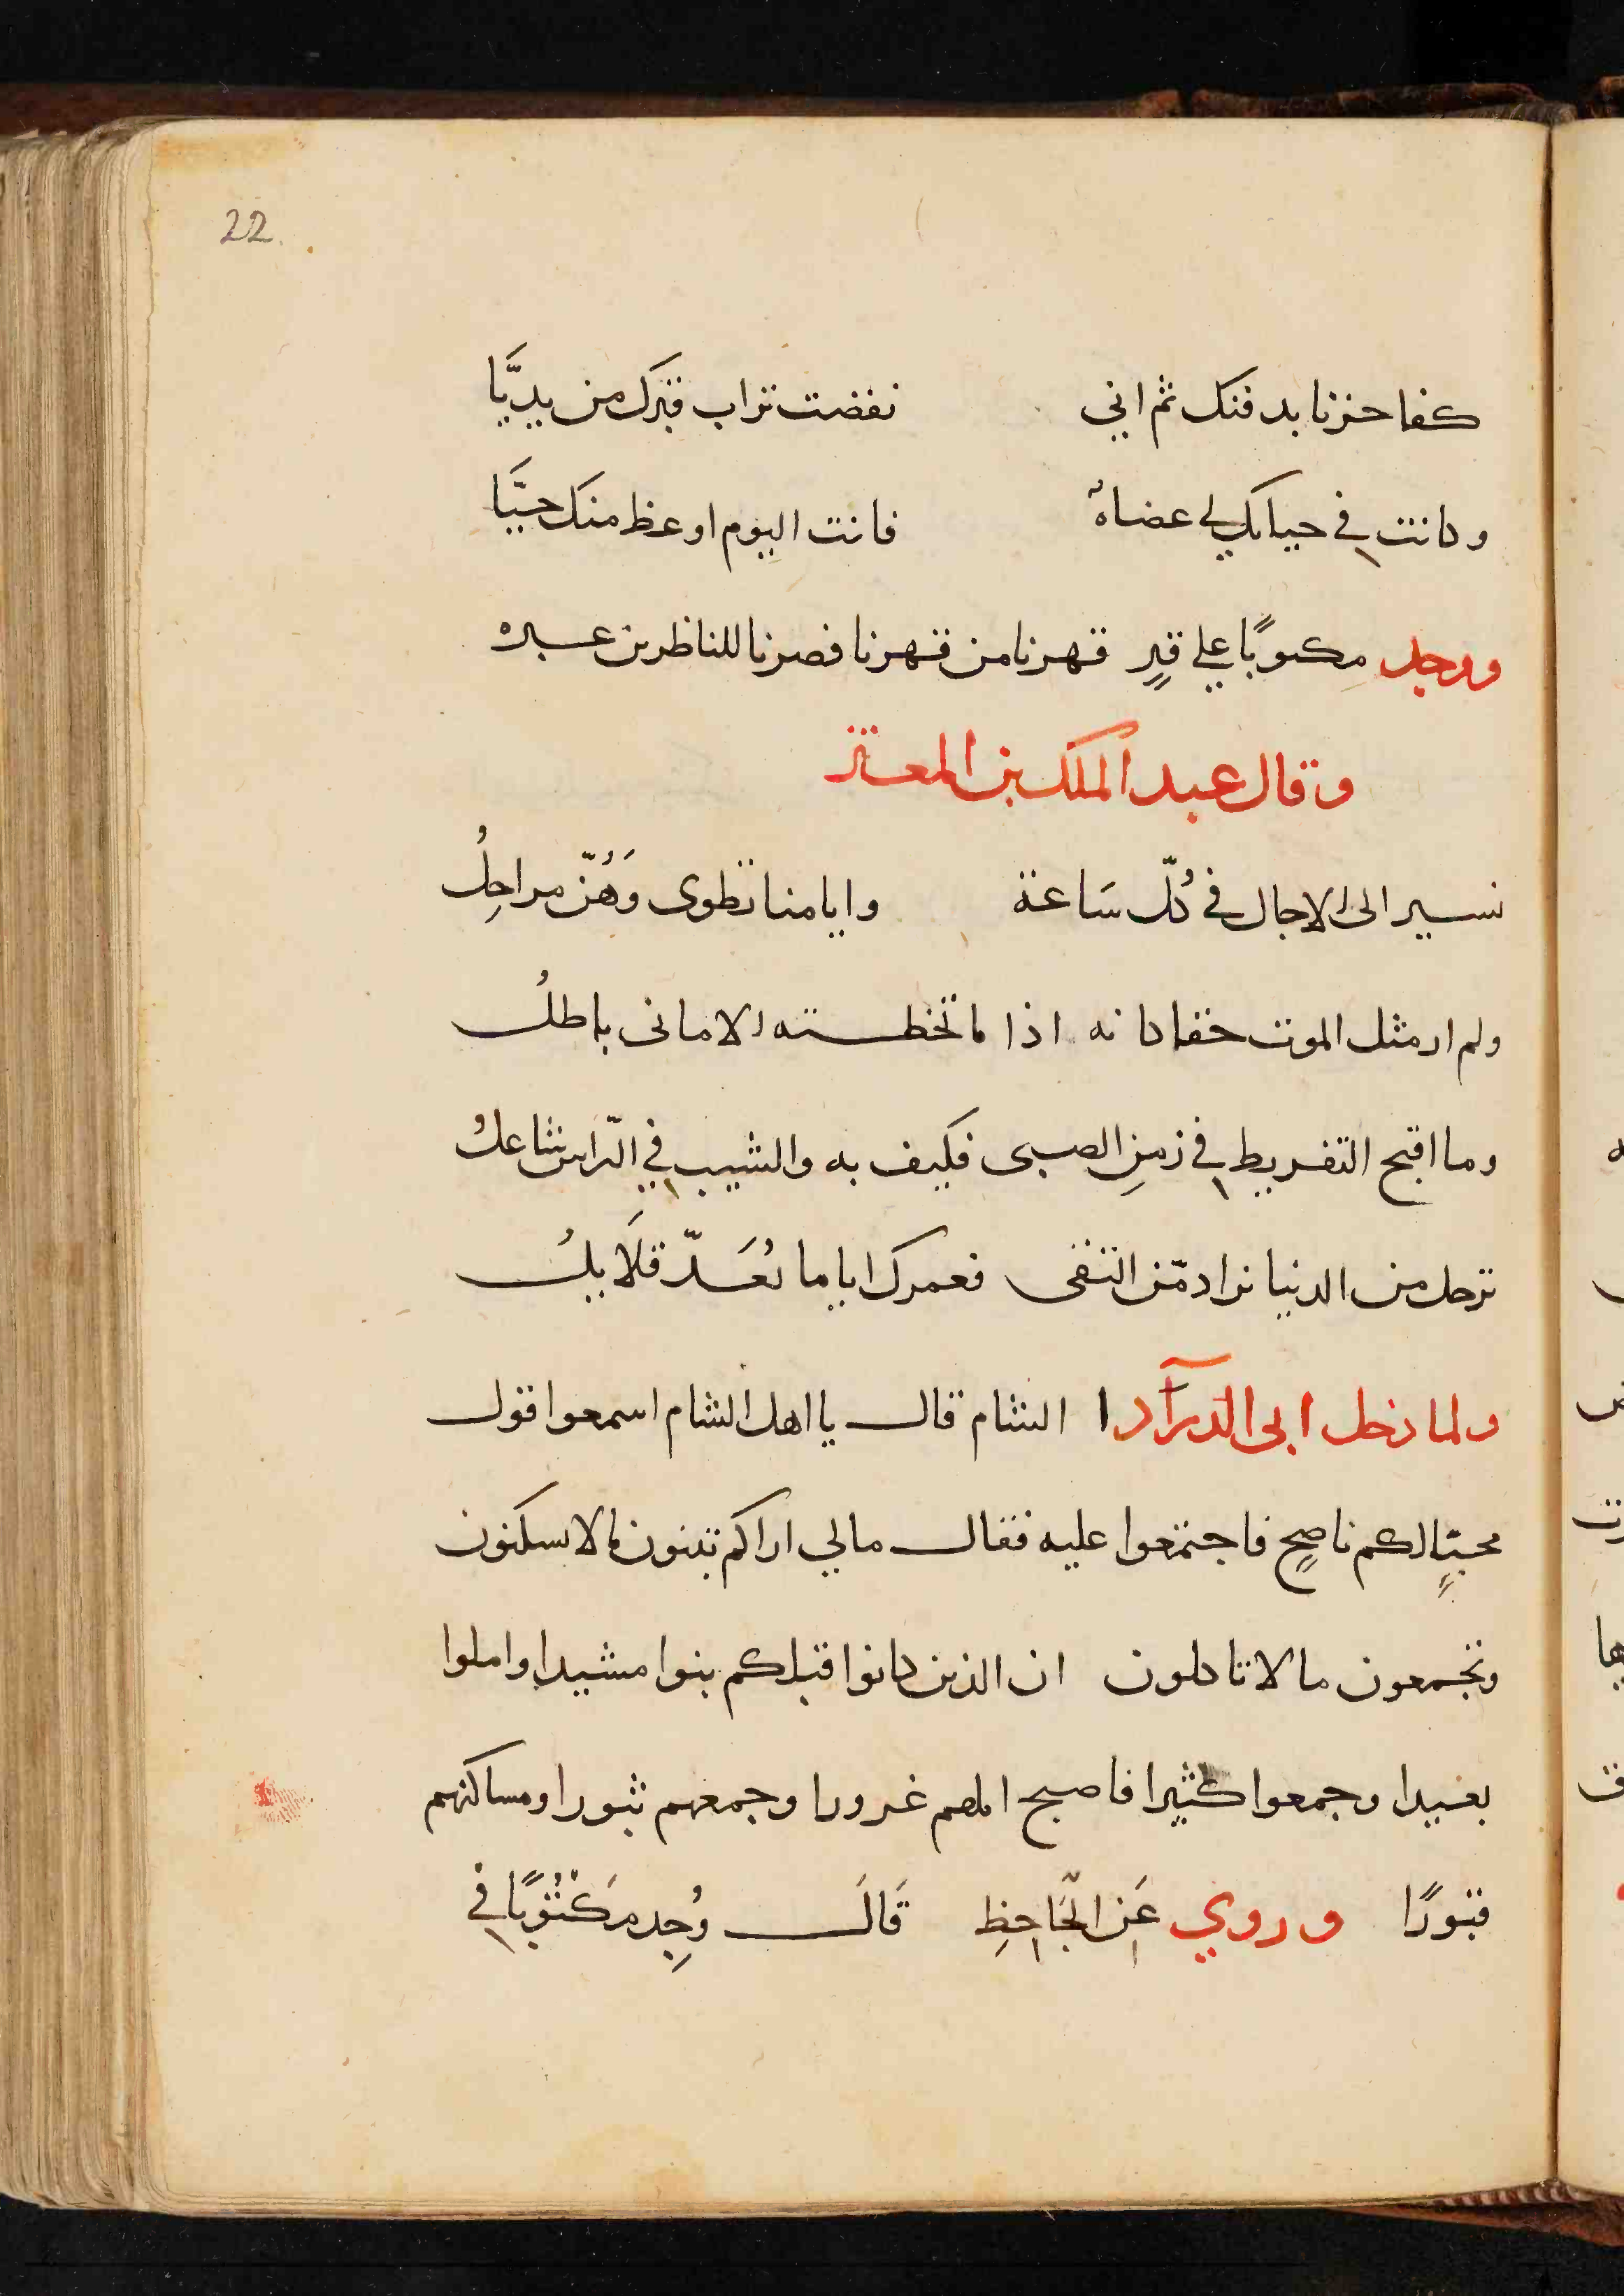 22
كفا حزنا بدفنك ثم اني نفضت تراب قبرك من يديَّا
وكانت في حياتك لي عضاةٌ فانت اليوم اوعظ منك حيَّا
ووجد مكتوبًا علي قبرٍ قهرنا من قهرنا فصرنا للناظرين عبره
وقال عبد الملك بن المعتز
نسير الى الاجال في كُلّ سَاعة وايامنا تطوى وَهُنّ مراحِلُ
ولم ار مثل الموت حقا كانه اذا ما تخطته الامانى باطلُ
وما اقبح التفريط في زمنِ الصبى فكيف به والشيب في الرّاس شاعلُ
ترحل من الدنيا بزاد مّن التقى فعمرك اياما تُعَدّ قلَايلُ
ولما دخل ابى الدرآدا الشام قال يا اهل الشام اسمعوا قول
محبٍّ لكم ناصحٍ فاجتمعوا عليه فقال مالي اراكم تبنون مالا تسكنون
وتجمعون ما لا تاكلون ان الذين كانوا قبلكم بنوا مشيدا واملوا
بعيدا وجمعوا كثيرا فاصبح املهم غرورا وجمعهم ثبورا ومساكنهم
قبورًا وروي عَنِ الجَاحِظِ قَالَ وُجِد مَكْتُوبًا في